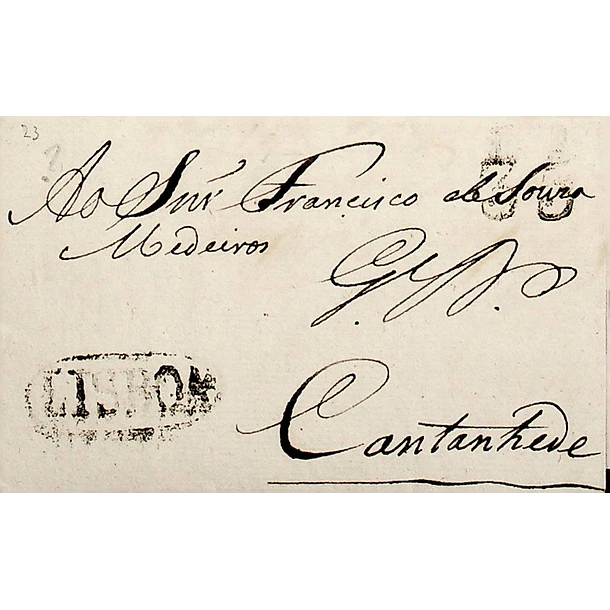 23
Ao Snr Francisco de Souza
Medeiros
G. D.
Cantanhede
LISBOA